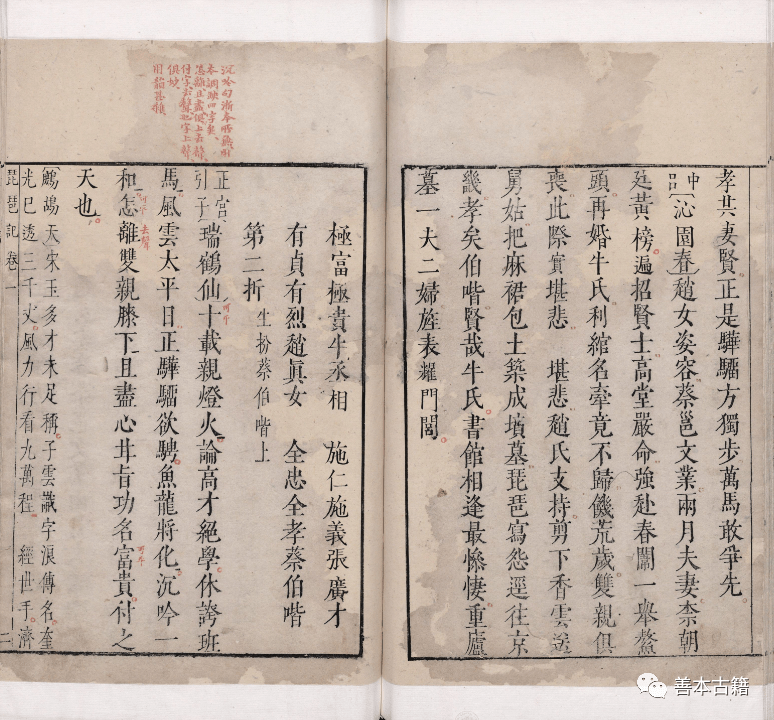 孝共妻賢正是驊騮方獨步萬馬敢爭先
中呂
沁園春趙女姿容蔡邕文業兩月夫妻柰朝
廷黃榜遍招賢士高堂嚴命強赴春闈一舉鰲
頭再婚牛氏利綰名牽竟不歸饑荒歲雙親俱
喪此際實堪悲 堪悲趙氏支持剪下香雲送
舅姑把麻裙包土築成墳墓琵琶寫怨逕往京
畿孝矣伯喈賢哉牛氏書館相逢最慘悽重廬
墓一夫二婦旌表耀門閭
極富極貴牛丞相 施仁施義張廣才
有貞有烈趙真女 全忠全孝蔡伯喈
第二折 生扮蔡伯喈上
正宮引子
瑞鶴仙十載親燈火論高才絕學休誇班
馬風雲太平日正驊騮欲騁魚龍將化沉吟一
和怎離雙親膝下且盡心甘旨功名富貴付之
天也
鷓鴣天宋玉多才未足稱子雲識字浪傳名奎
光已透三千丈風力行看九萬程 經世手濟
琵琶記卷一
二
可平
去聲
可平
可平
善本古籍